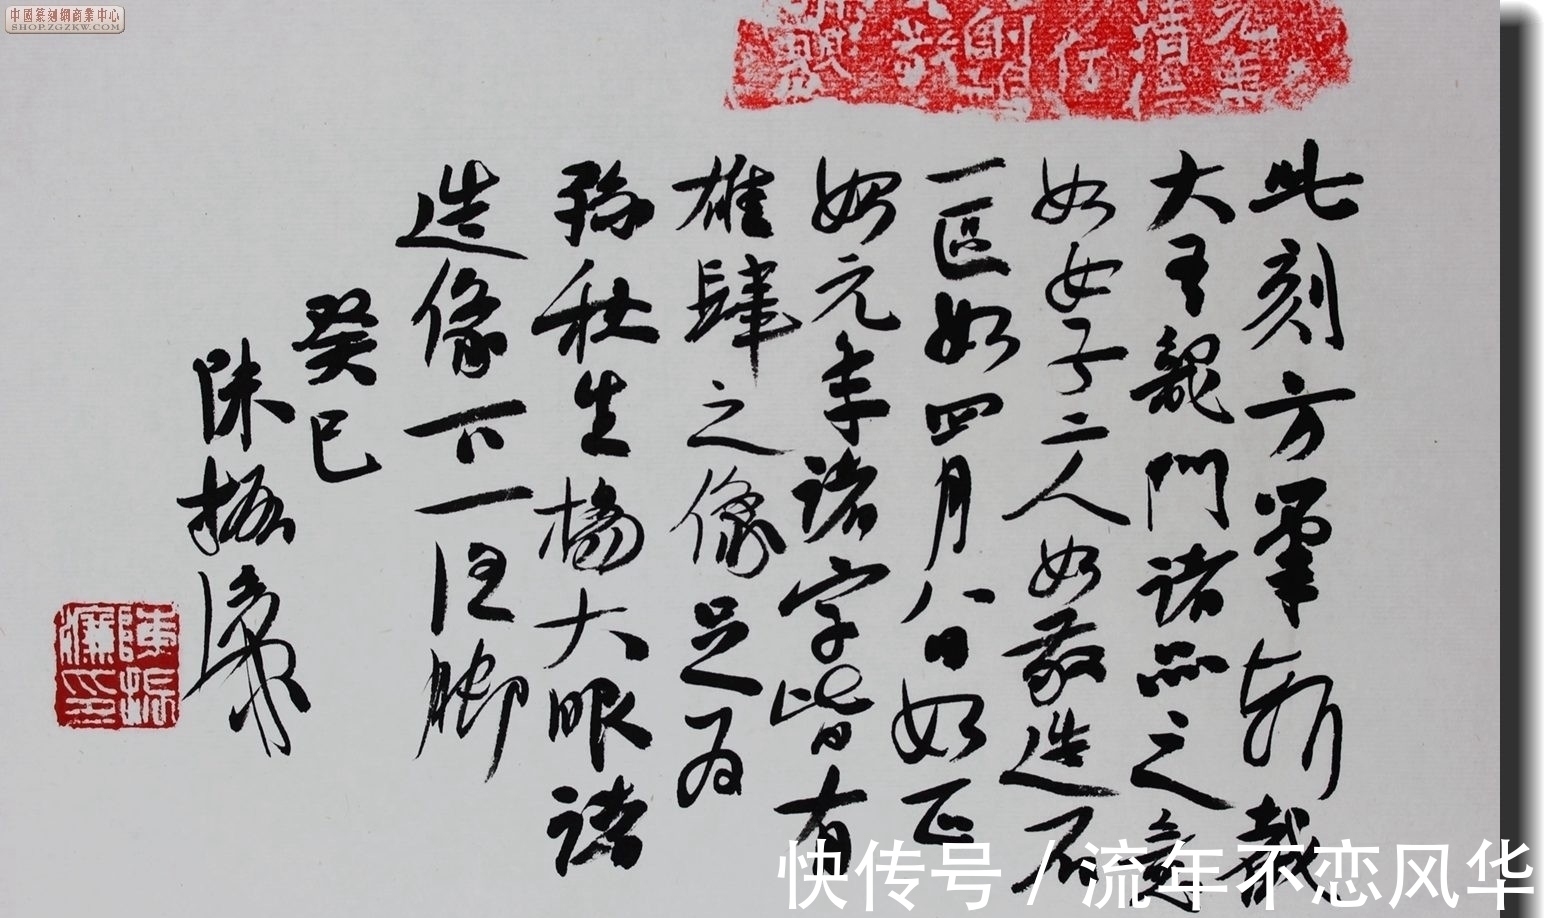 中國篆刻網商業中心
SHOP.ZGZKW.COM
此刻方筆斬截
大有龍門諸品之意
如女子二人如敬造石
一區如四月八日如正
始元年諸字皆有
雄肆之像足为
孫秋生楊大眼諸
造像下一注脚
癸巳
陈振濂
陳振濂印
快传号 / 流年不恋风华